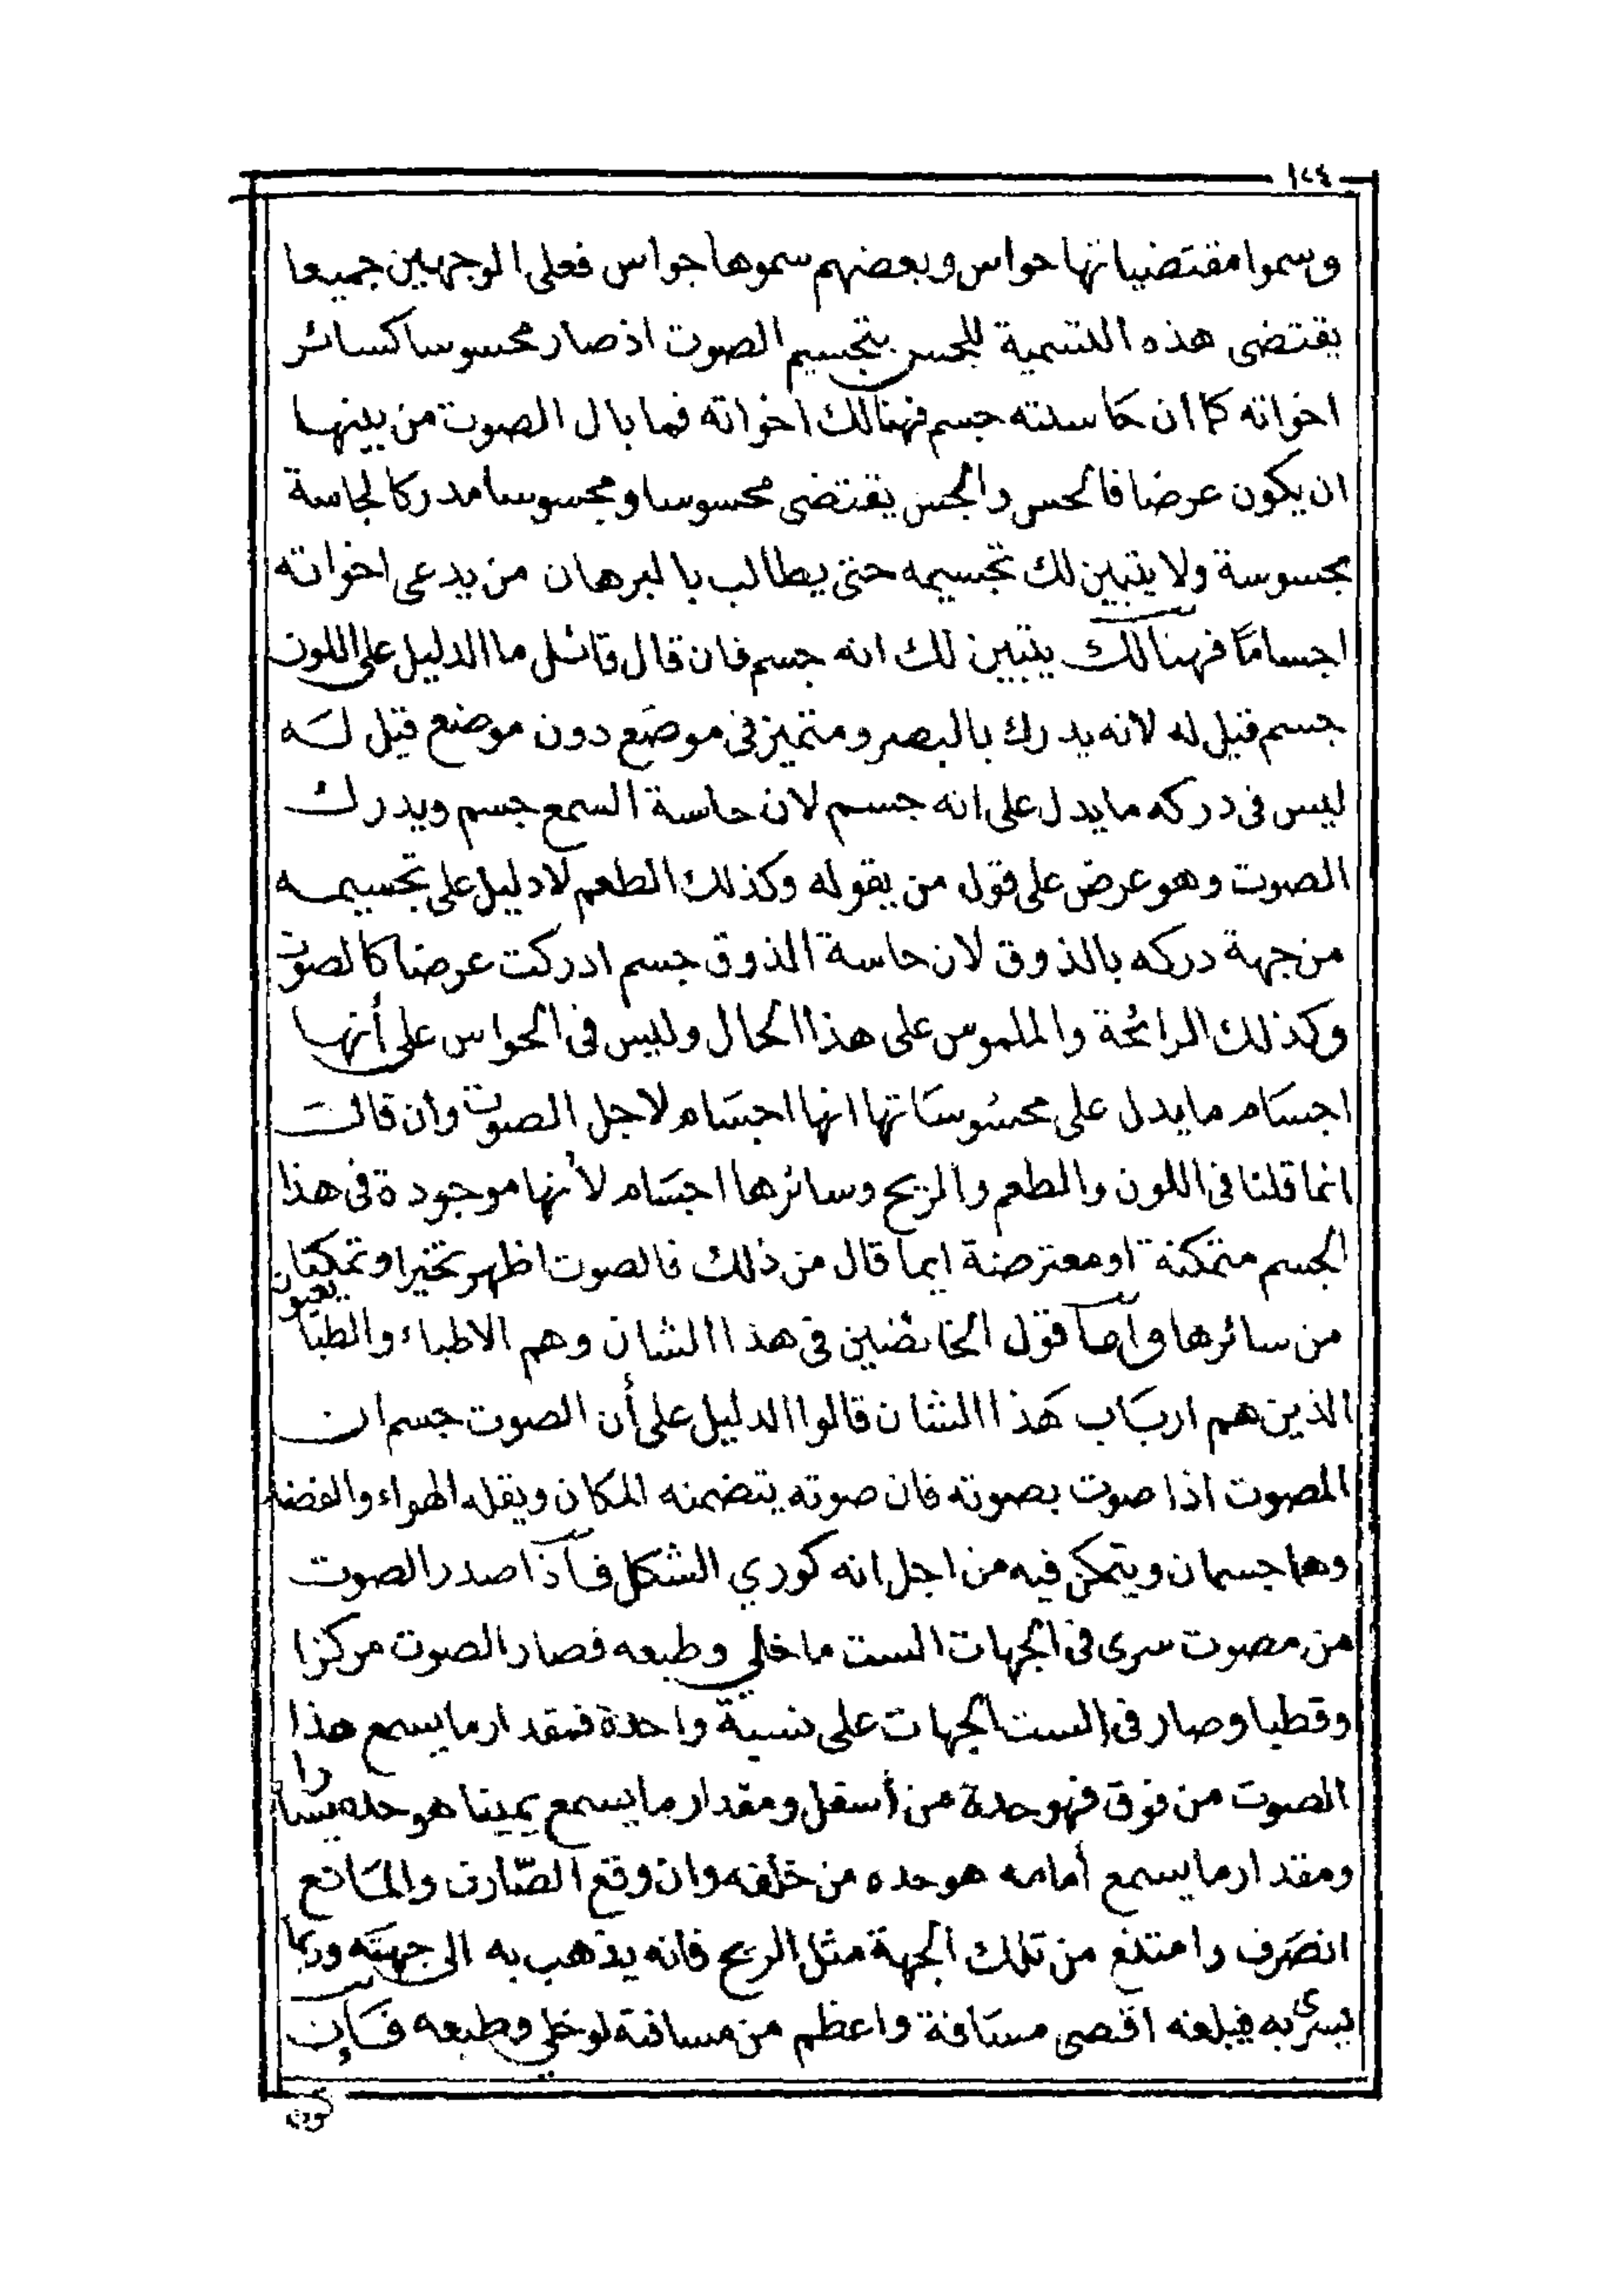 ١٠٤
وسموا مقتضياتها حواس وبعضهم سموها جواس فعلى الوجهين جميعا
يقتضى هذه التسمية للجس بتجسيم الصوت اذ صار محسوسا كسائر
اخواته كما ان حاسته جسم فهنالك اخواته فما بال الصوت من بينها
ان يكون عرضا فالحس والجس يقتضى محسوسا ومجسوسا مدركا لجاسة
مجسوسة ولا يتبين لك تجسيمه حتى يطالب بالبرهان من يدعى اخواته
اجساما فهنالك يتبين لك انه جسم فان قال قائل ما الدليل على اللون
جسم قيل له لانه يدرك بالبصر ومتميز فى موضع دون موضع قيل له
ليس فى دركه ما يدل على انه جسم لان حاسة السمع جسم ويدرك
الصوت وهو عرض على قول من يقوله وكذلك الطعم لا دليل على تجسيمه
من جهة دركه بالذوق لان حاسة الذوق جسم ادركت عرضا كالصوت
وكذلك الرائحة والملموس على هذا الحال وليس فى الحواس على أنها
اجسام ما يدل على محسوساتها انها اجسام لاجل الصوت وان قالت
انما قلنا فى اللون والطعم والريح وسائرها اجسام لأنها موجودة فى هذا
الجسم متمكنة او معترضة ايما قال من ذلك فالصوت اظهر تحيزا وتمكنا
من سائرها واما قول الخائضين فى هذا الشان وهم الاطباء والطبايعيون
الذين هم ارباب هذا الشان قالوا الدليل على أن الصوت جسم ان
المصوت اذا صوت بصوته فان صوته يتضمنه المكان ويقله الهواء والفضا
وهما جسمان ويتمكن فيه من اجل انه كوري الشكل فاذا صدر الصوت
من مصوت سرى فى الجهات الست ما خلي وطبعه فصار الصوت مركزا
وقطبا وصار فى الست الجهات على نسبة واحدة فمقدار ما يسمع هذا
الصوت من فوق فهو حدة من أسفل ومقدار ما يسمع يمينا هو حده يسارا
ومقدار ما يسمع أمامه هو حده من خلفه وان وقع الصّارف والمانع
انصرف وامتنع من تلك الجهة مثل الريح فانه يذهب به الى جهته وربما
يسرى به فيبلغه اقصى مسافة واعظم من مسافته لو خلي وطبعه فإن